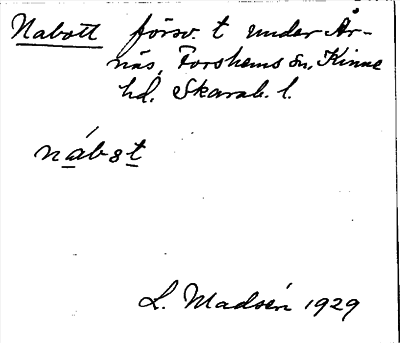 Nabott försv. t under År-
näs, Forshems sn, Kinne
hd. Skarab. l.
nábot
L. Madsén 1929